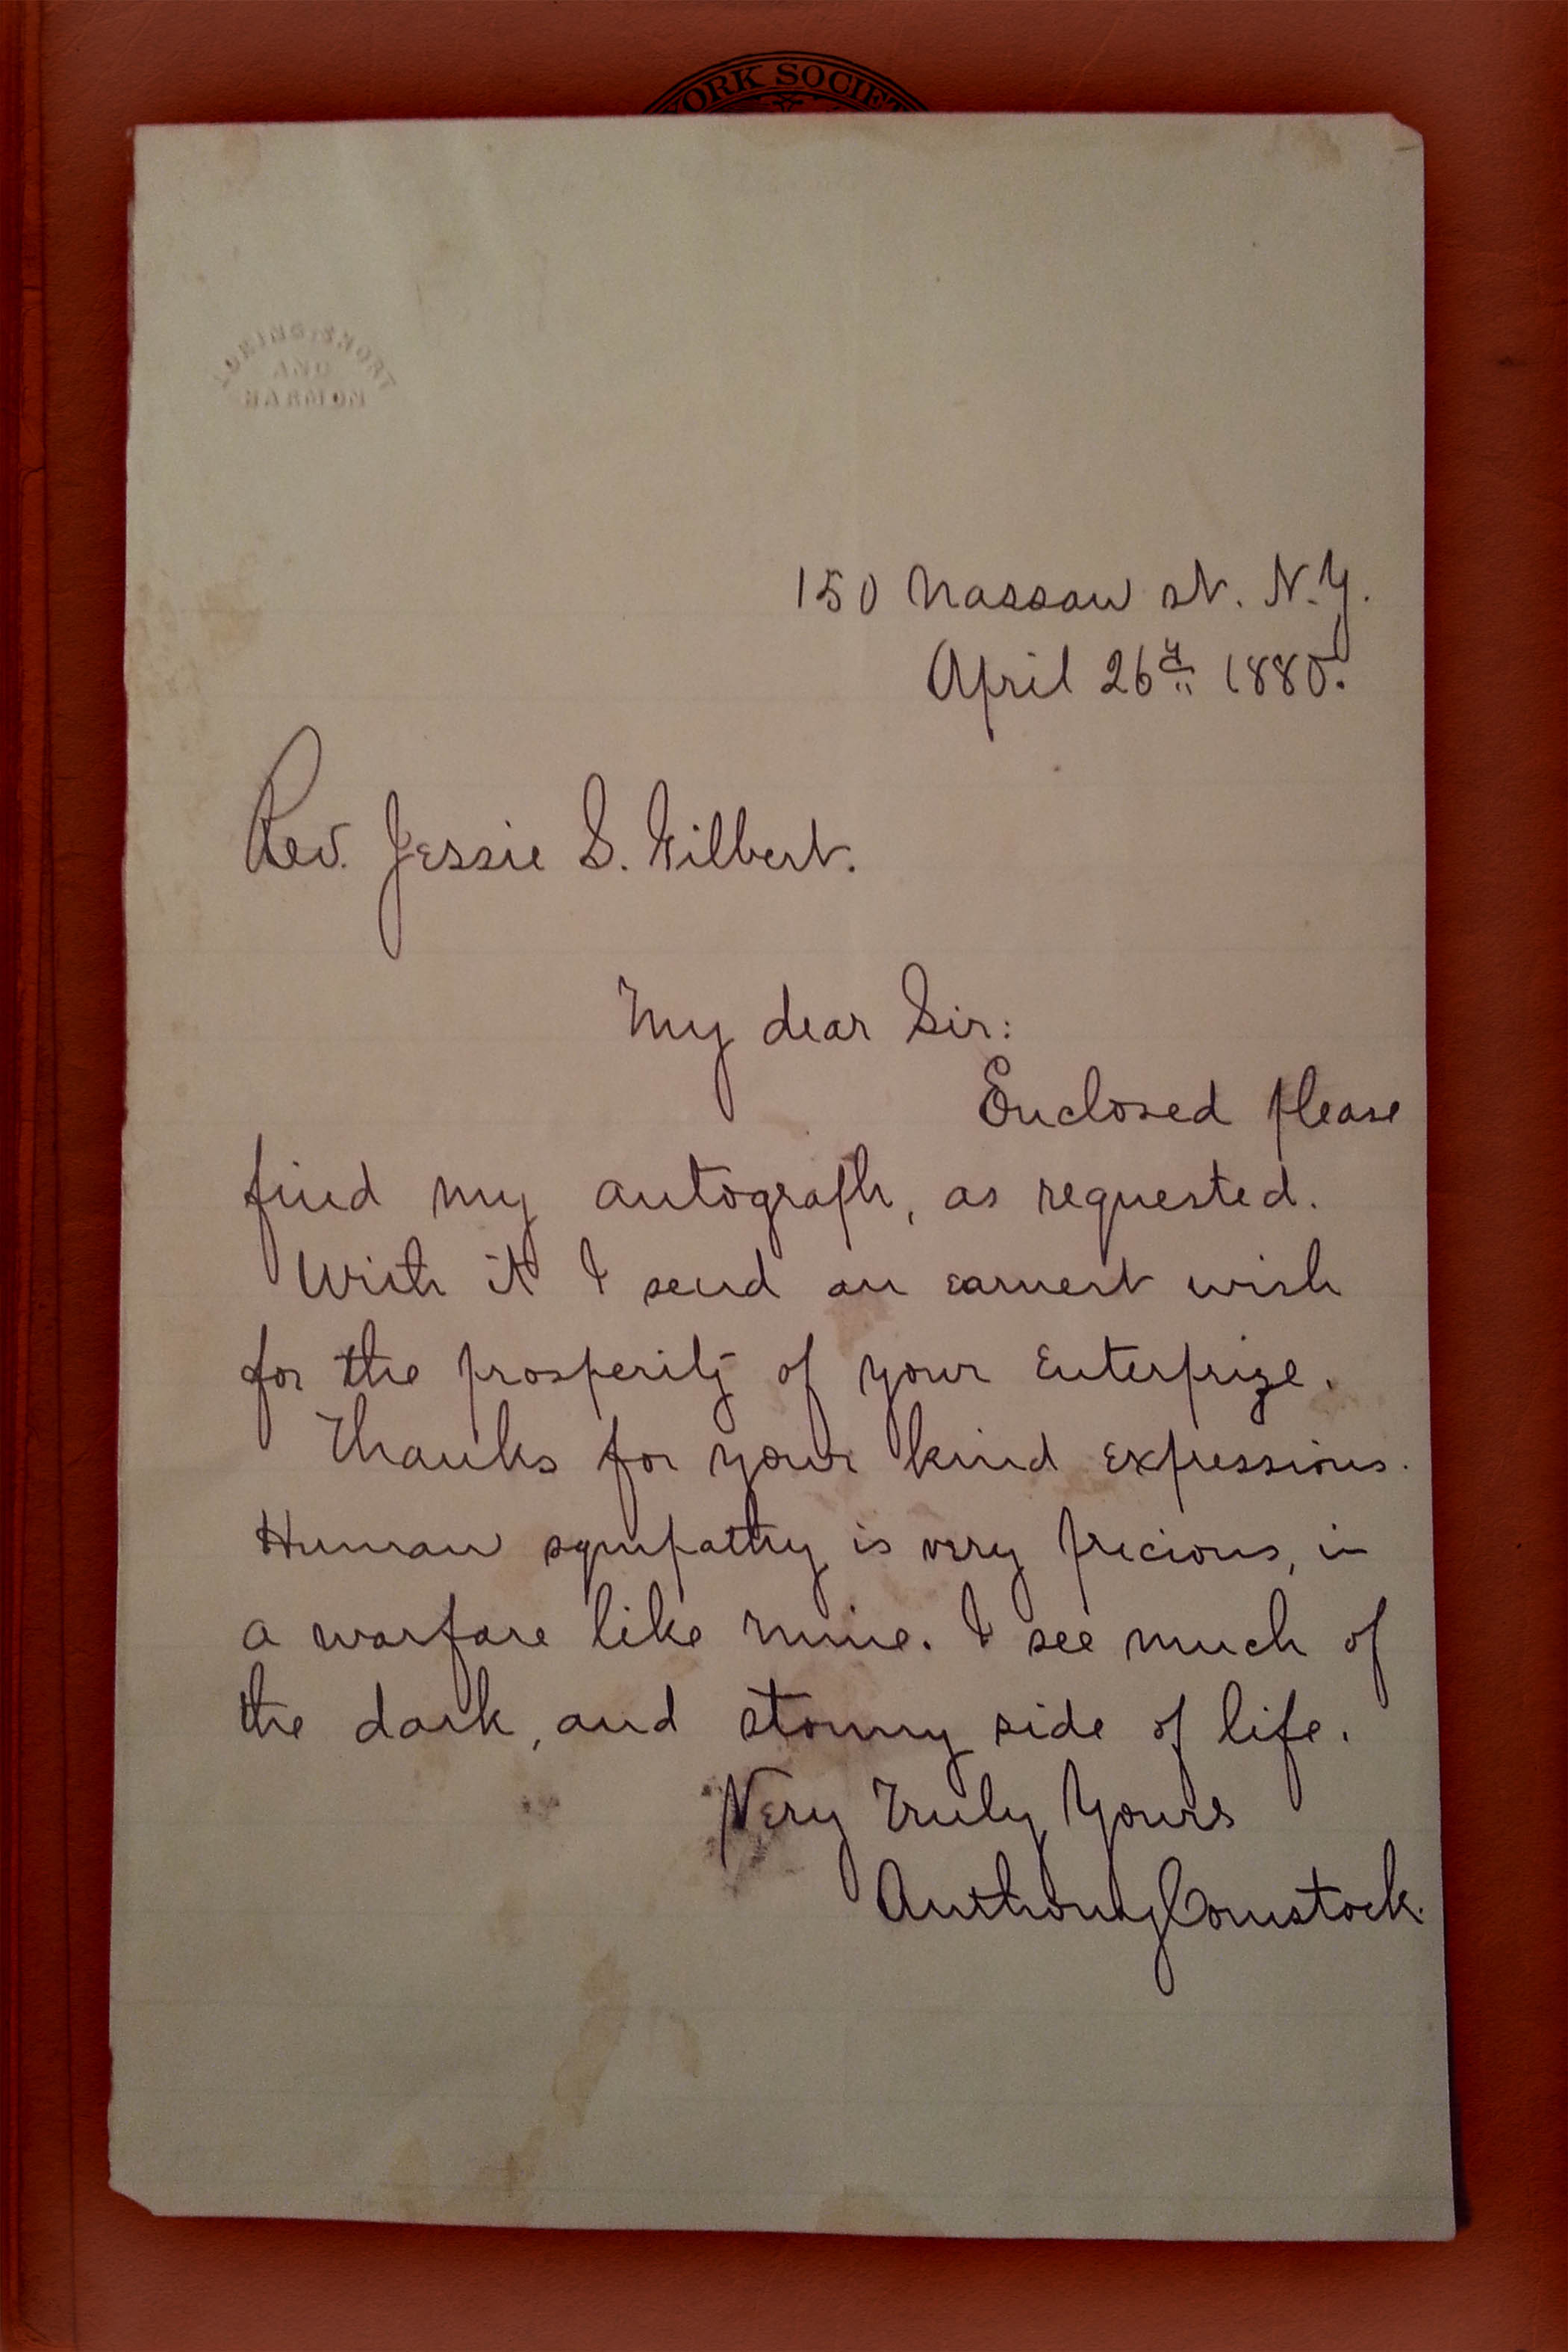 YORK SOCIET
LORING, SHORT
AND
HARMON
150 Nassau St. N.Y.
April 26th 1880.
Rev. Jessie S. Gilbert.
My dear Sir:
Enclosed please
find my autograph, as requested.
With it I send an earnest wish
for the prosperity of your Enterprize.
Thanks for your kind expressions.
Human sympathy is very precious, in
a warfare like mine. I see much of
the dark, and stormy side of life.
Very Truly Yours
Anthony Comstock.